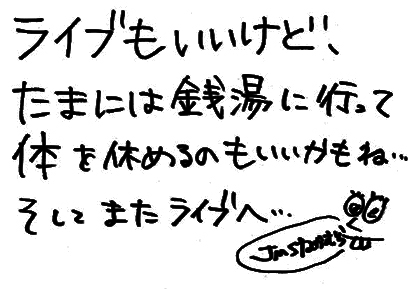 ライブもいいけど、
たまには銭湯に行って
体を休めるのもいいかもね…
そしてまたライブへ…